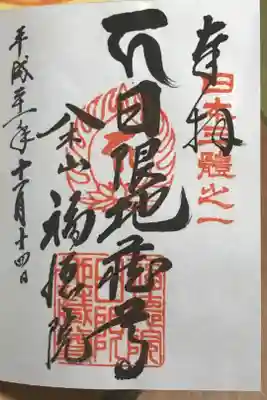 奉拝
日本三體之一
日限地蔵尊
八木山 福徳院
平成 年十一月十四日